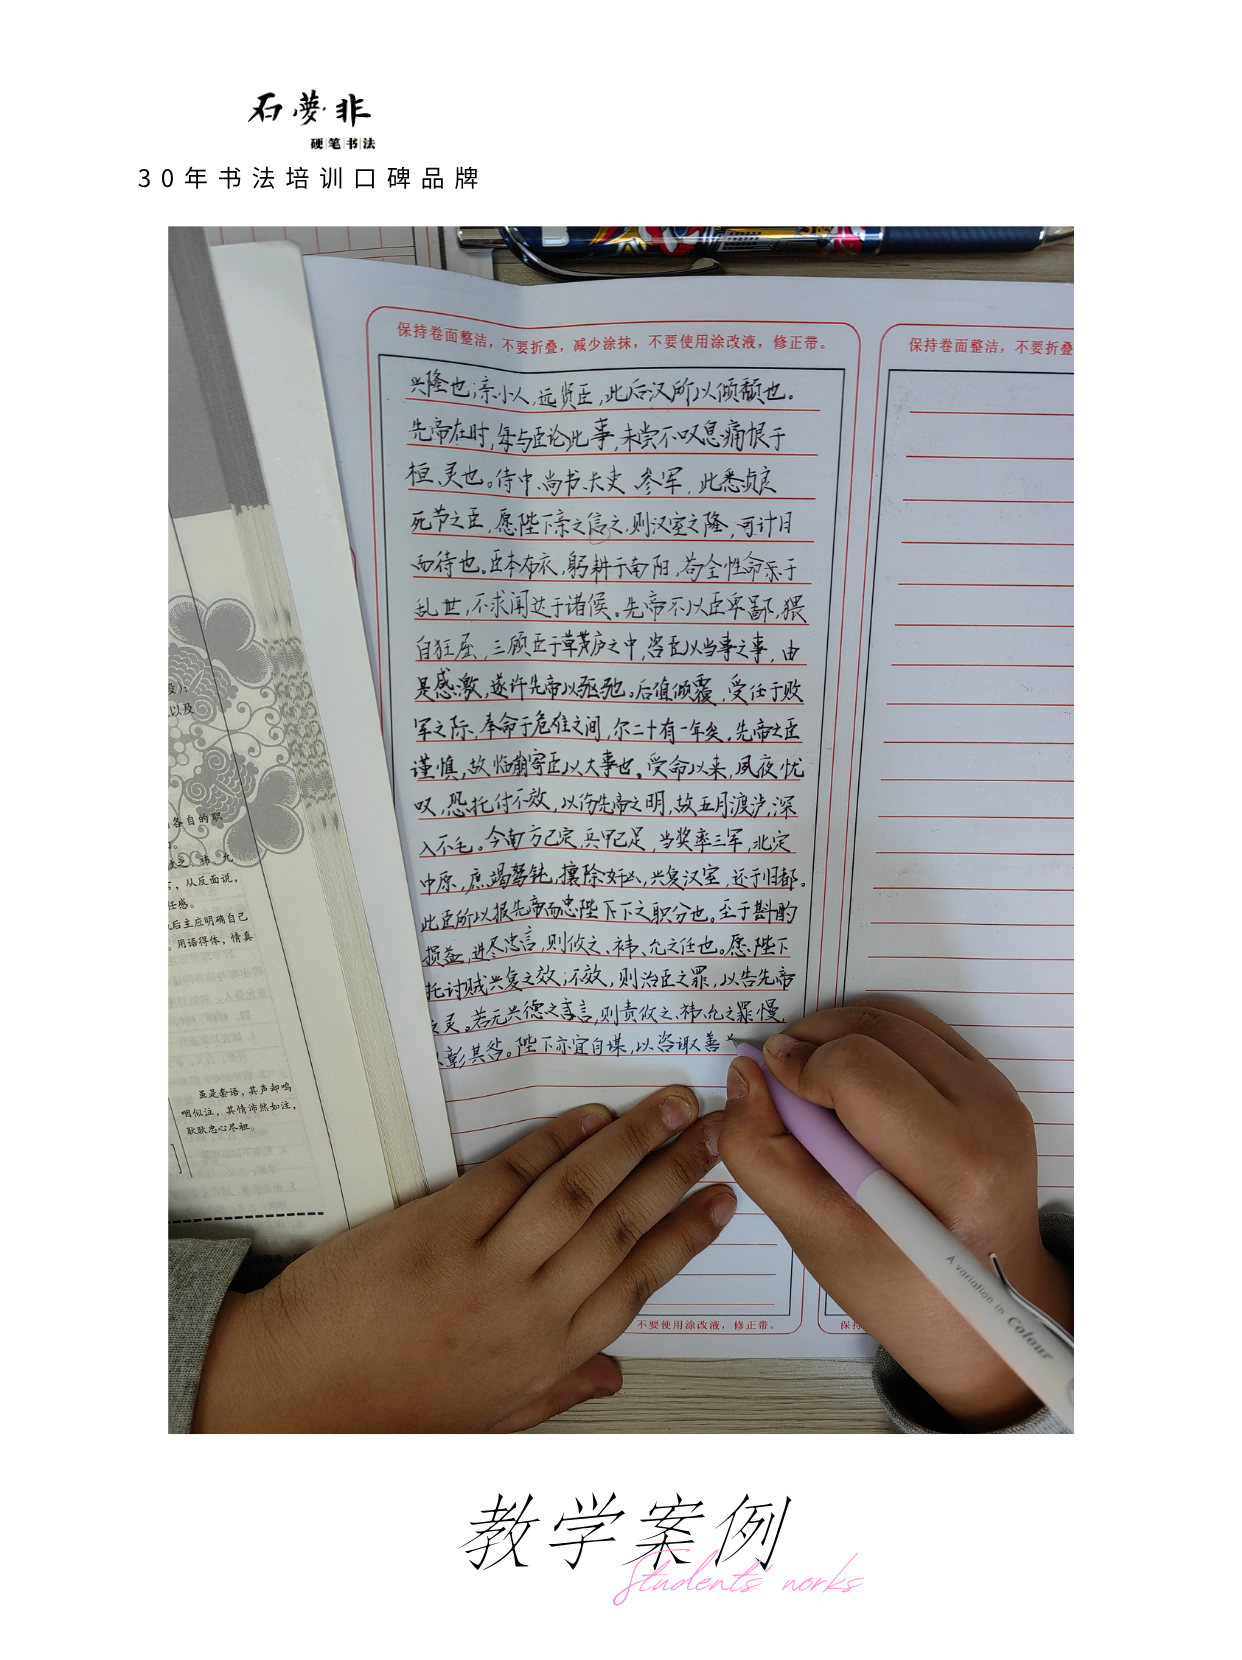 石夢非
硬笔书法
30年书法培训口碑品牌
保持卷面整洁，不要折叠，减少涂抹，不要使用涂改液，修正带。
保持卷面整洁，不要折叠
兴隆也；亲小人，远贤臣，此后汉所以倾颓也。
先帝在时，每与臣论此事，未尝不叹息痛恨于
桓、灵也。侍中、尚书、长史、参军，此悉贞良
死节之臣，愿陛下亲之信之，则汉室之隆，可计日
而待也。臣本布衣，躬耕于南阳，苟全性命于
乱世，不求闻达于诸侯。先帝不以臣卑鄙，猥
自枉屈，三顾臣于草庐之中，咨臣以当事之事，由
是感激，遂许先帝以驱驰。后值倾覆，受任于败
军之际，奉命于危难之间，尔二十有一年矣。先帝之臣
谨慎，故临崩寄臣以大事也。受命以来，夙夜忧
叹，恐托付不效，以伤先帝之明，故五月渡泸，深
入不毛。今南方已定，兵甲已足，当奖率三军，北定
中原，庶竭驽钝，攘除奸凶，兴复汉室，还于旧都。
此臣所以报先帝而忠陛下下之职分也。至于斟酌
损益，进尽忠言，则攸之、祎、允之任也。愿陛下
托讨贼兴复之效；不效，则治臣之罪，以告先帝
之灵。若无兴德之言，则责攸之、祎、允之罪慢，
彰其咎。陛下亦宜自谋，以咨诹善
以及
各自的职
，从反面说，
任感。
后主应明确自己
用语得体，情真
虽是套语，其声却呜
咽似泣，其情沛然如注，
耿耿忠心尽袒。
不要使用涂改液，修正带。
保持
A variation in Colour
教学案例
Students' norks